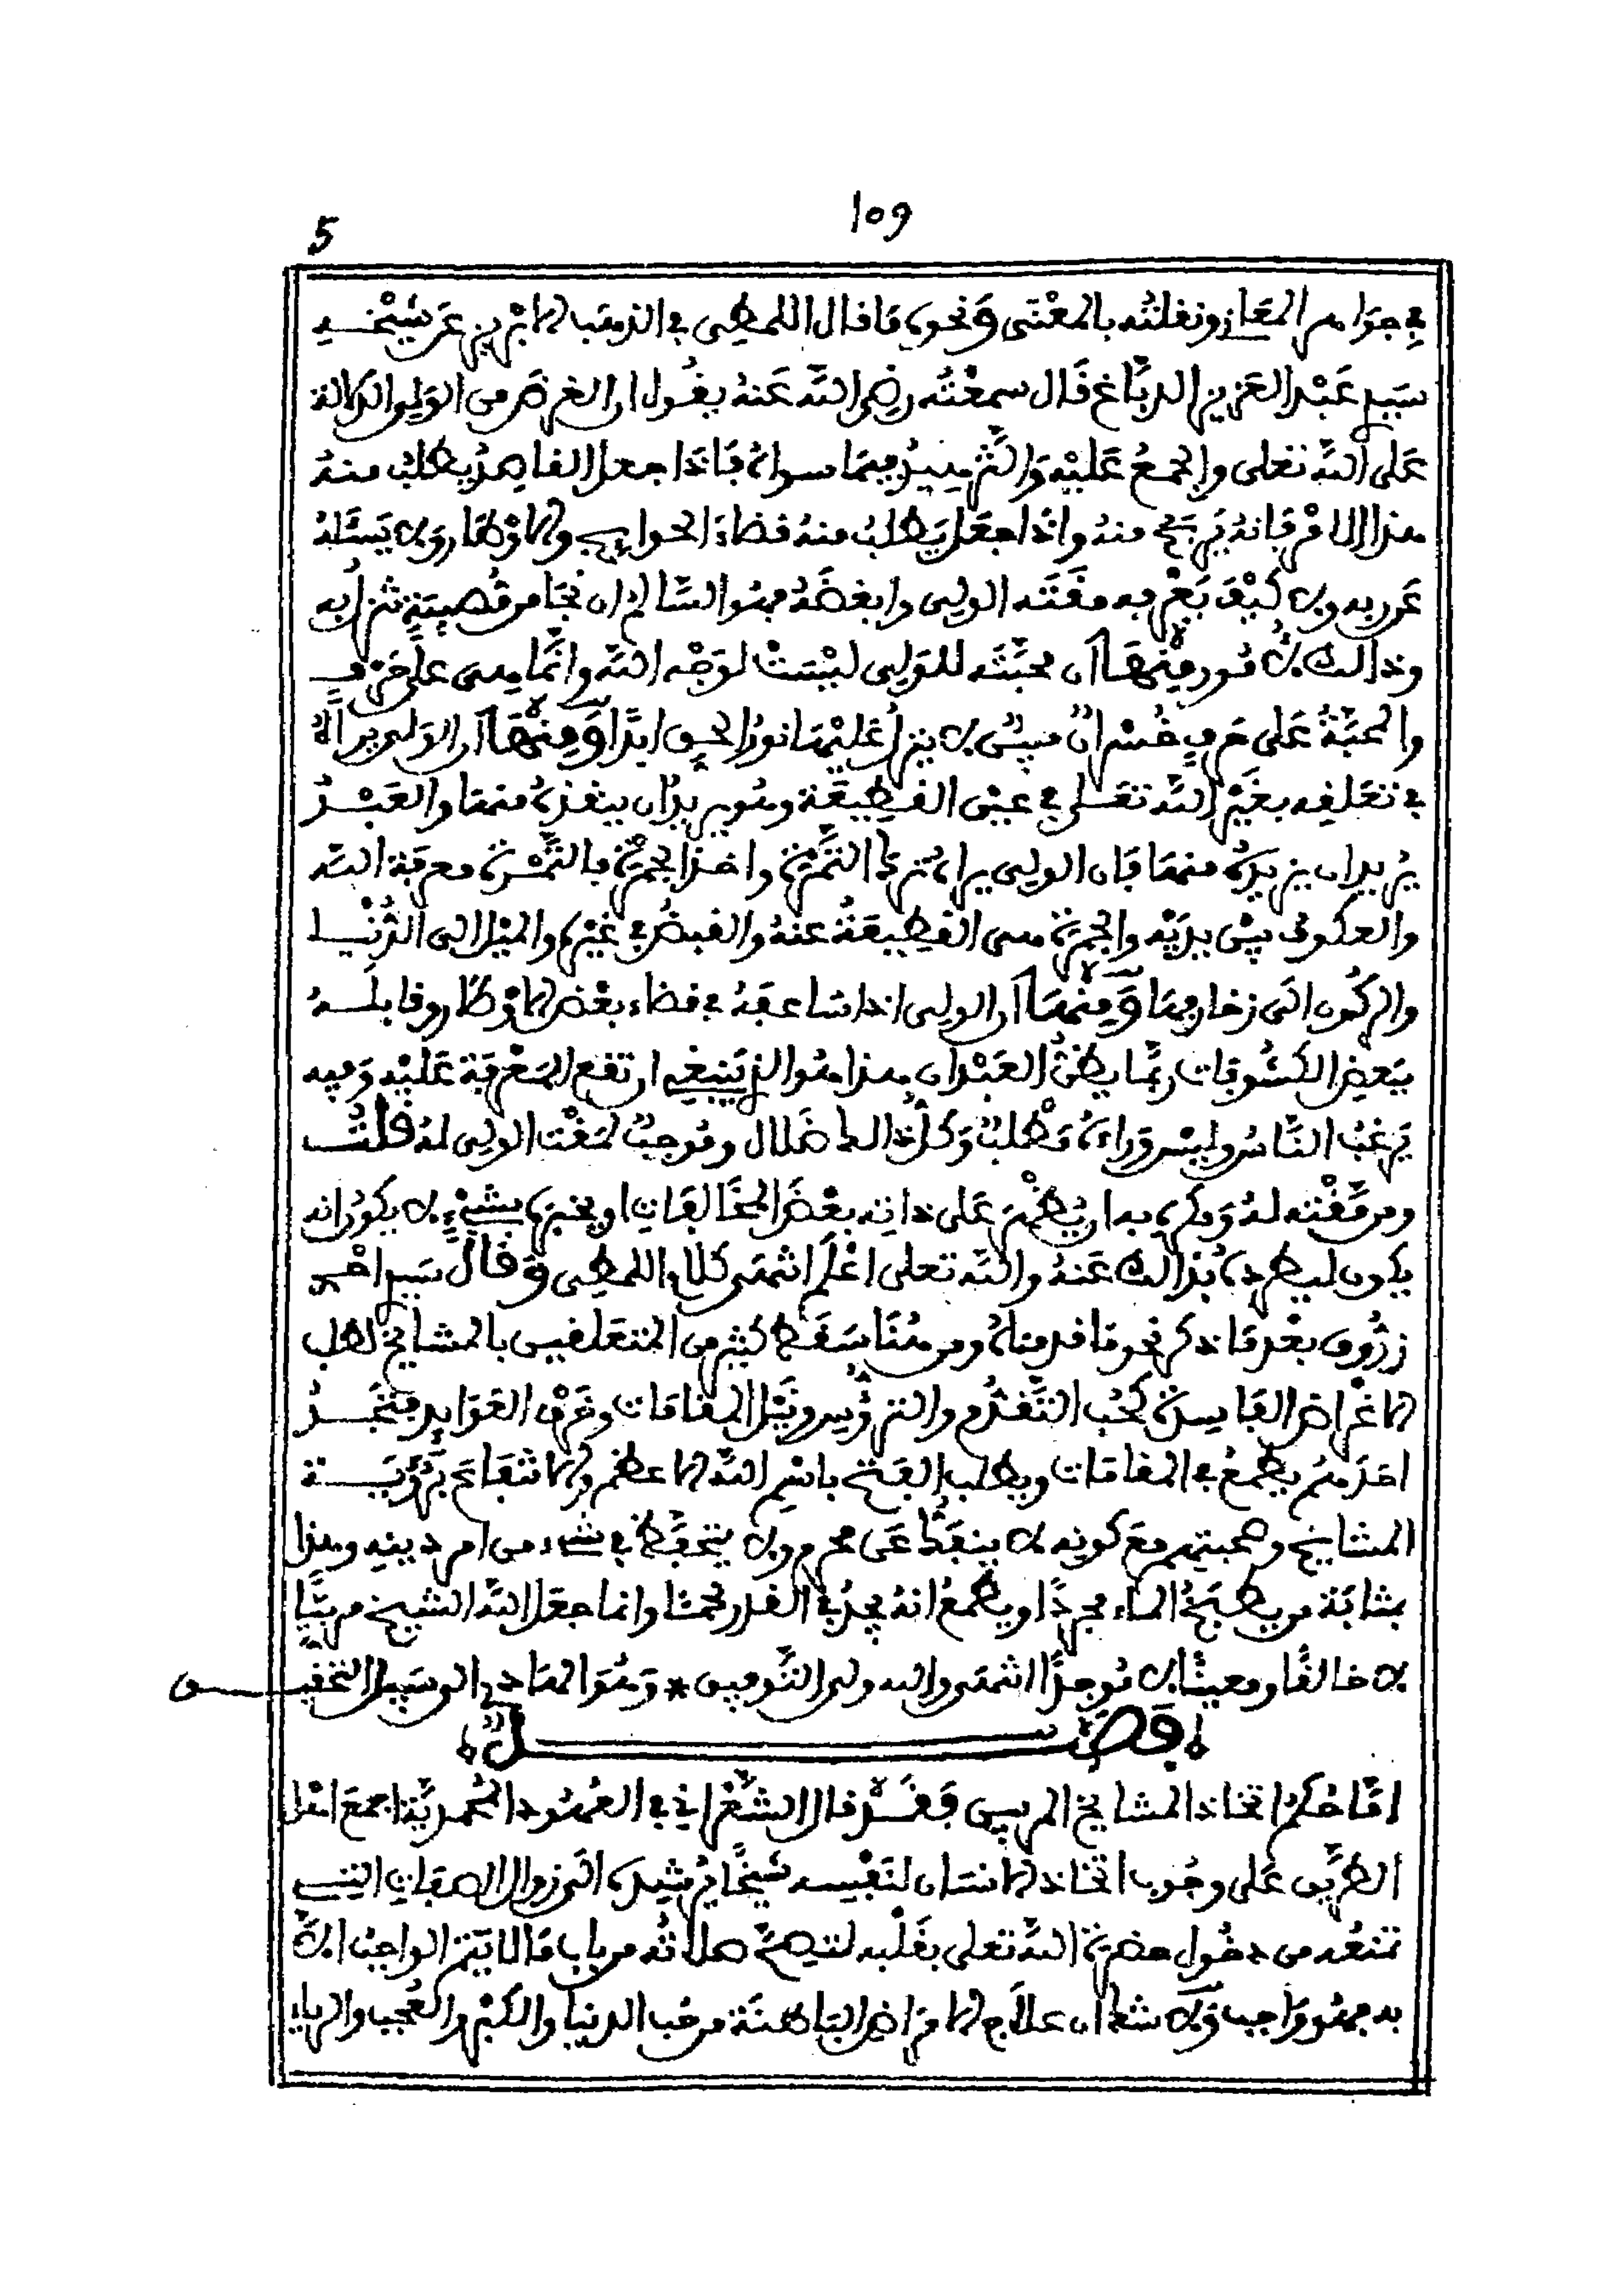 109
5
في جواهر المعاني ونقلته بالمعنى ونحوه ما قال اللمطي في الذهب الابريز عن شيخه
سيدي عبد العزيز الدباغ قال سمعته رضي الله عنه يقول ان الغرض من الولي الدلالة
على الله تعلى والجمع عليه والتزهيد فيما سواه فاذا جعل القاصد يطلب منه
هذا الامر فانه يربح منه واذا جعل يطلب منه قضاء الحوايج والاوطار ولا يسئله
عن ربه ولا كيف يعرفه مقته الولي وابغضه فهو السالم ان نجا من مصيبة تنزل به
وذالك لامور منها ان محبته للولي ليست لوجه الله وانما هي على حرف
والمحبة على حرف خسران مبين لا ينزل عليها نور الحق ابدا ومنها ان الولي يراه
في تعلقه بغير الله تعلى في عين القطيعة وهو يريد ان ينقذه منها والعبد
يريد ان يزيده منها فان الولي يراه ترك التمرة واخذ الجمرة فالتمرة معرفة الله
والعكوف بين يديه والجمرة هي القطيعة عنه والقبض في غيره والميل الى الدنيا
والركون الى زخارفها ومنها ان الولي اذا ساعفه في قضاء بعض الاوطار وقابله
ببعض الكشوفات ربما يظن العبد ان هذا هو الذي ينبغي ان تقع المعرفة عليه وفيه
يرغب الناس وليس وراءه مطلب وكل ذالك ضلال وموجب لمقت الولي له قلت
ومن مقته له ومكره به ان يظهر على ذاته بعض المخالفات او يخبره بشيء لا يكون انه
يكون ليطرده بذالك عنه والله تعلى اعلم انتهى كلام اللمطي وقال سيدي احمد
زروق بعد ما ذكر نحو ما قدمناه ومن هنا سقط كثير من المتعلقين بالمشايخ لطلب
الاغراض الفاسدة كحب التقدم والترؤس ونيل المقامات وخرق العوايد فتجد
احدهم يطمع في المقامات ويطلب الفتح باسم الله الاعظم والانتفاع برؤية
المشايخ وصحبتهم مع كونه لا ينفك عن محرم ولا يتحفظ في شيء من امر دينه وهذا
بمثابة من يطبخ الماء مجردا ويطمع انه يجد في القدر لحما وانما جعل الله الشيخ مربيا
لا خالقا ومعينا لا موجدا انتهى والله ولي التوفيق * وهو الهادي الى سبيل التحقيق
فصل
اما حكم اتخاذ المشايخ المربين فقد قال الشعراني في العهود المحمدية اجمع اهل
الطريق على وجوب اتخاذ الانسان لنفسه شيخا يرشده الى زوال الصفات التي
تمنعه من دخول حضرة الله تعلى بقلبه لتصح صلاته من باب ما لا يتم الواجب الا
به فهو واجب ولا شك ان علاج الامراض الباطنة من حب الدنيا والكبر والعجب والرياء